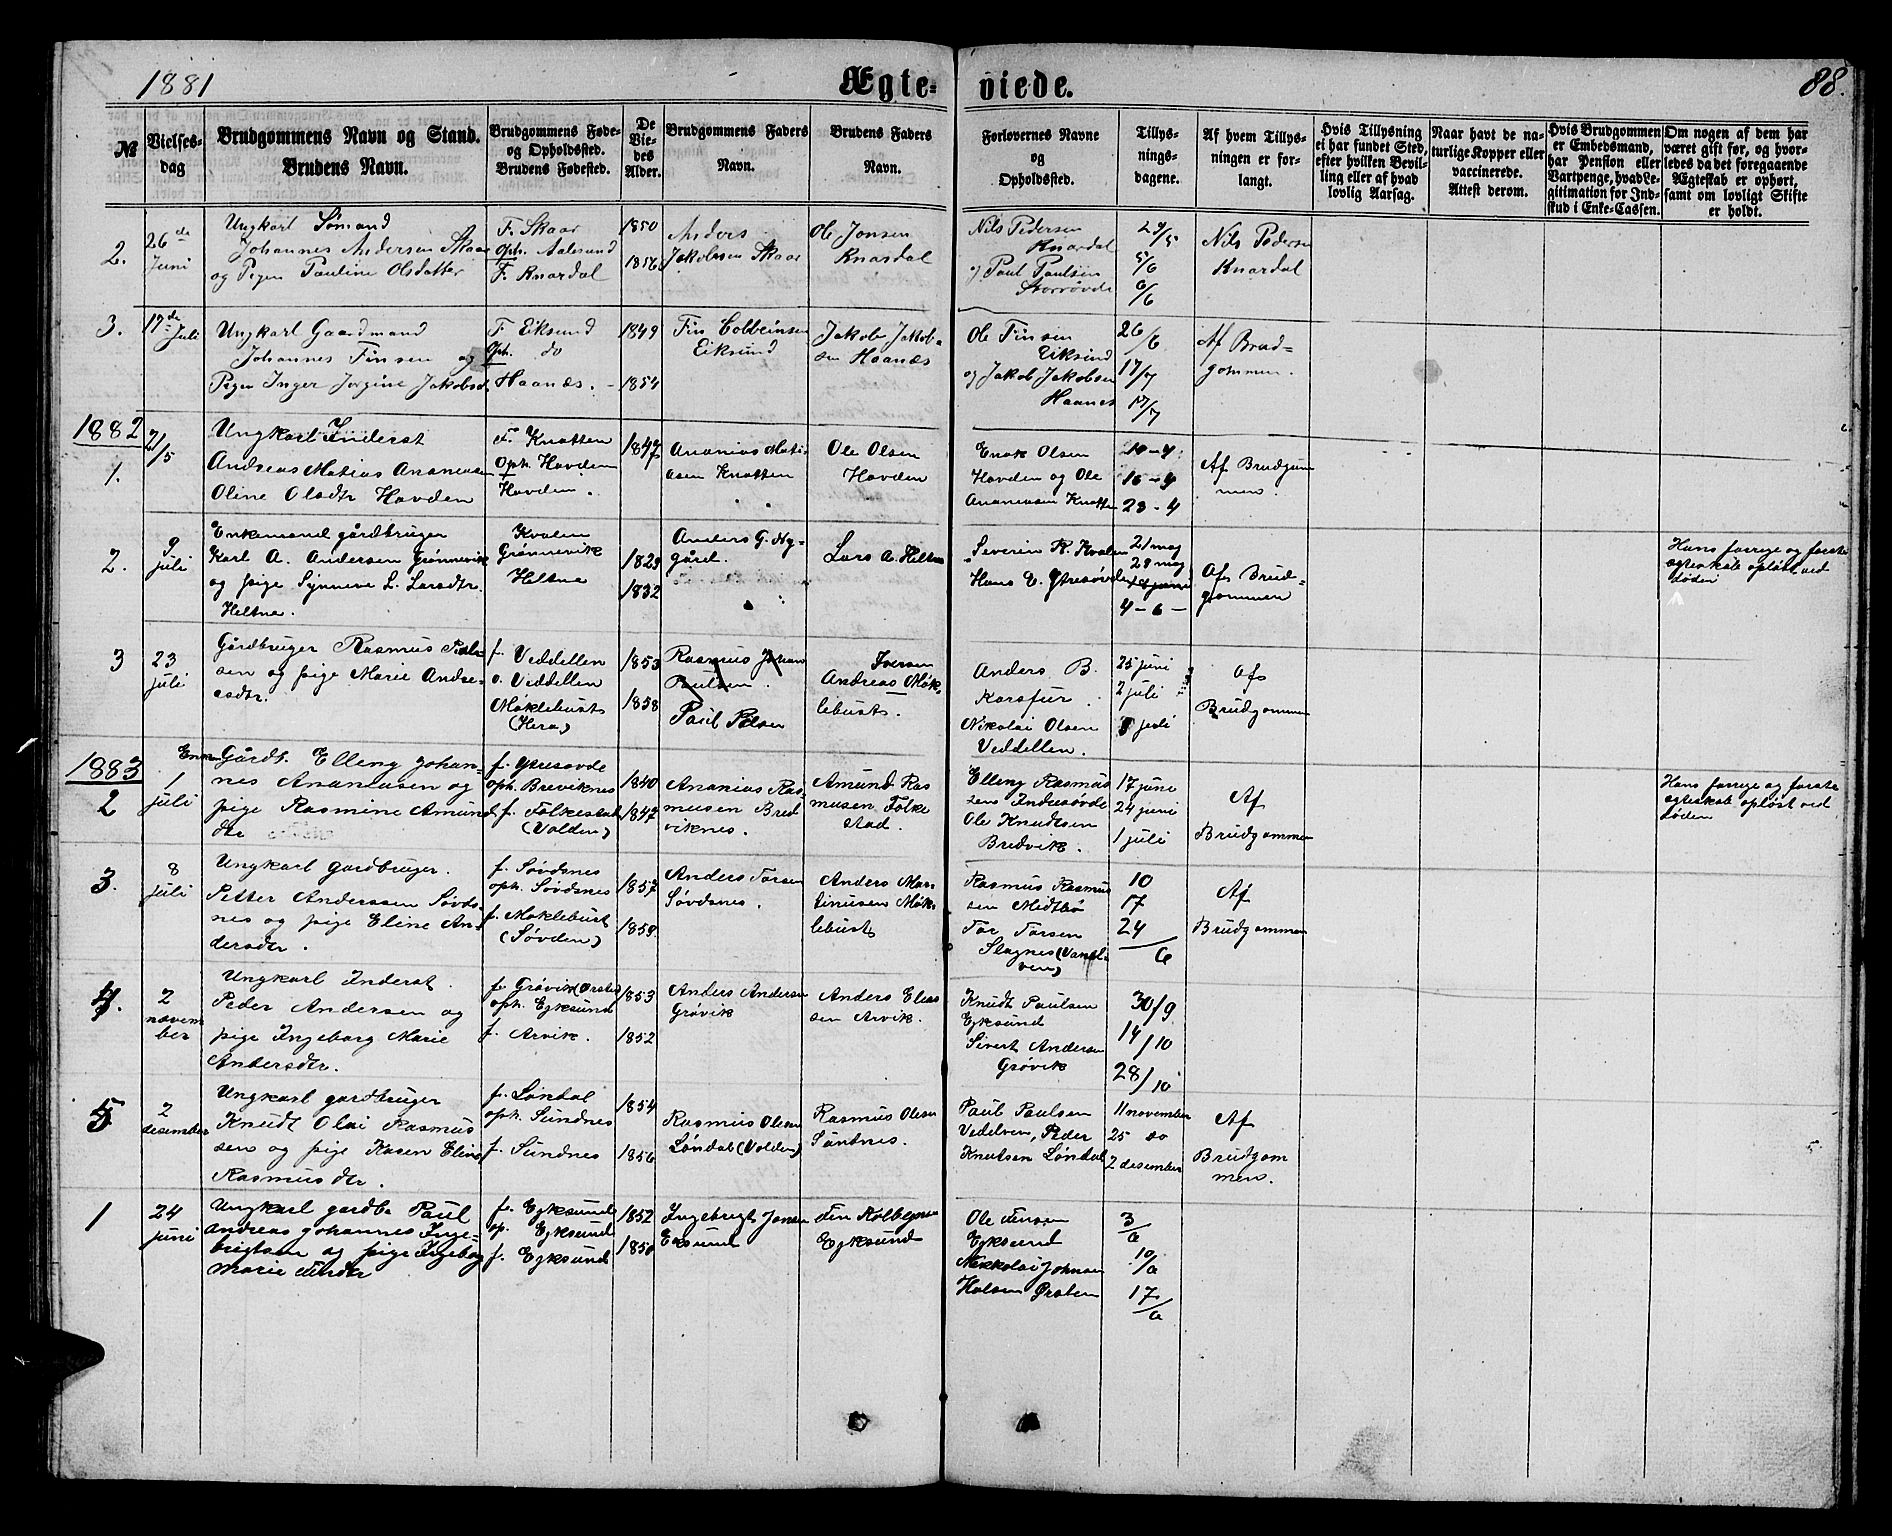 1881
Ægte-
viede.
88.
№
Vielses-
dag
Brudgommens Navn og Stand.
Brudens Navn.
Brudgommens Føde-
og Opholdssted.
Brudens Fødested.
De
Vie-
des
Alder.
Brudgommens Faders
Navn.
Brudens Faders
Navn.
Forlovernes Navne
og
Opholdssted.
Tillys-
nings-
dagene.
Af hvem Tillys-
ningen er for-
langt.
Hvis Tillysning
ei har fundet Sted,
efter hvilken Bevil-
ling eller af hvad
lovlig Aarsag.
Naar havt de na-
turlige Kopper eller
vaccinerede.
Attest derom.
Hvis Brudgommen
er Embedsmand,
har Pension eller
Vartpenge, hvad Le-
gitimation for Ind-
skud i Enke-Cassen.
Om nogen af dem har
været gift før, og hvor-
ledes da det foregaaende
Ægteskab er ophørt,
samt om lovligt Skifte
er holdt.
2.
26de
Juni
Ungkarl Sømand
Johannes Andersen Skaar
og Pigen Pauline Olsdatter
F. Skaar
Oph. Aalesund
F. Knardal
1850
1856
Anders
Jakobsen Skaar
Ole Jonsen
Knardal
Nils Pedersen
Knardal
og Paul Paulsen
Storrøvde
29/5
5/6
6/6
Nils Pedersen
Knardal
3.
17de
Juli
Ungkarl Gaardmand
Johannes Finsen og
Pigen Inger Jorgine Jakobsd.
F. Eiksund
Oph. do
Haanæs.
1849
1854
Fin Colbeinsen
Eiksund
Jakob Jakob-
sen Haanæs
Ole Finsen
Eiksind
og Jakob Jakobsen
Haanes
26/6
17/7
17/7
Af Brud-
gommen.
1882
1.
2/5
Ungkarl Inderst
Andreas Matias Ananiasen
Oline Olsdtr Hovden
F. Knotten
Oph. Hovden
Hovden.
1847
Ananias Mati-
asen Knotten
Ole Olsen
Hovden
Enok Olsen
Hovden og Ole
Ananiasen Knotten
10-4
16-4
23-4
Af Brudgom
men.
2.
9
juli
Enkemand gårdbruger
Karl A. Andersen Grønnevik
og pige Synneve L. Larsdtr.
Heltne.
Kvalen
Grønnevik
Heltne
1829
1832
Anders G. Ny-
gård.
Lars A. Heltne
Severin K. Kvalen
Hans E. Ytresøvde
21 maj
29 maj
4-6-
Af Brud-
gommen
Hans forrige og første
egteskab opløst ved
døden
3
23
juli
Gårdbruger Rasmus Pals-
sen og pige Marie Andre-
asdtr.
f. Veddellen
o. Veddellen
Møklebust
(Herø)
1853
1858
Rasmus Johan
Paulsen.
Paul Pdsen
Iversen
Andreas Møk-
lebust.
Anders B.
Korsfur.
Nikolai Olsen
Veddellen.
25 juni
2 juli
9 juli
Af
Brudgommen
1883
2
1
juli
Enkem.
Gårdb. Elling Johan-
nes Ananiasen og
pige Rasmine Amund
dtr
f. Ytresøvde
oph. Breviknes
f. Folkestad
(Volden)
1840
1847
Ananias Ras-
musen Bred
viknes.
Amund Ras
musen Folke
stad.
Elling Rasmus
sens Indresøvde
Ole Knudtsen
Bredvik.
17 june
24 juni
1 juli
Af
Brudgommen
Hans forrige og første
egteskab opløst ved
døden
3.
8
juli
Ungkarl gardbruger.
Petter Anderssen Søvds-
nes og pige Eline An-
dersdtr.
f. Søvdsnes
oph. Søvdsnes
f. Møklebust
(Søvden)
1857
1859.
Anders Torsen
Søvdsnes.
Anders Mar-
tinusen Møk-
lebust
Rasmus Rasmus
sen Midtbø
Tor Torsen
Slagnes (Vanel-
ven)
10
17
24
/6
Af
Brudgommen
4.
2
november
Ungkarl Inderst.
Peder Andersen og
pige Ingeborg Marie
Andersdtr.
f. Grøvik (Ørsten)
oph. Ejksund
f. Arvik.
1853
1852
Anders Andersen
Grøvik
Anders Elias
sen Arvik.
Knudt Paulsen
Ejksund
Sivert Andersen
Grøvik
30/9
14/10
28/10
5
2
desember
Ungkarl gardbruger
Knudt Olai Rasmus
sen og pige Karen Eline
Rasmusdtr.
f. Løndal
oph. Sundnes
f. Sundnes
1854
1856
Rasmus Olsen
Løndal (Volden)
Rasmus Olsen
Sundnes.
Paul Paulsen
Vedelven, Peder
Knutsen Løndal
11 november
25 do
2 desember
Af
Brudgom
men.
1
24
juni
Ungkarl gardb. Paul
Andreas Johannes Inge-
brigtsen og pige Ingeborg
Marie Finsdtr
f. Ejksund
op. Ejksund
f. Ejksund
1852
1850
Ingebrigt Jonsen
Eksund
Fin Kolbejnsen
Ejksund
Ole Finsen
Ejksund
Nikkolai Johnsen
Holsen Ørsten
3/6
10/6
17/6